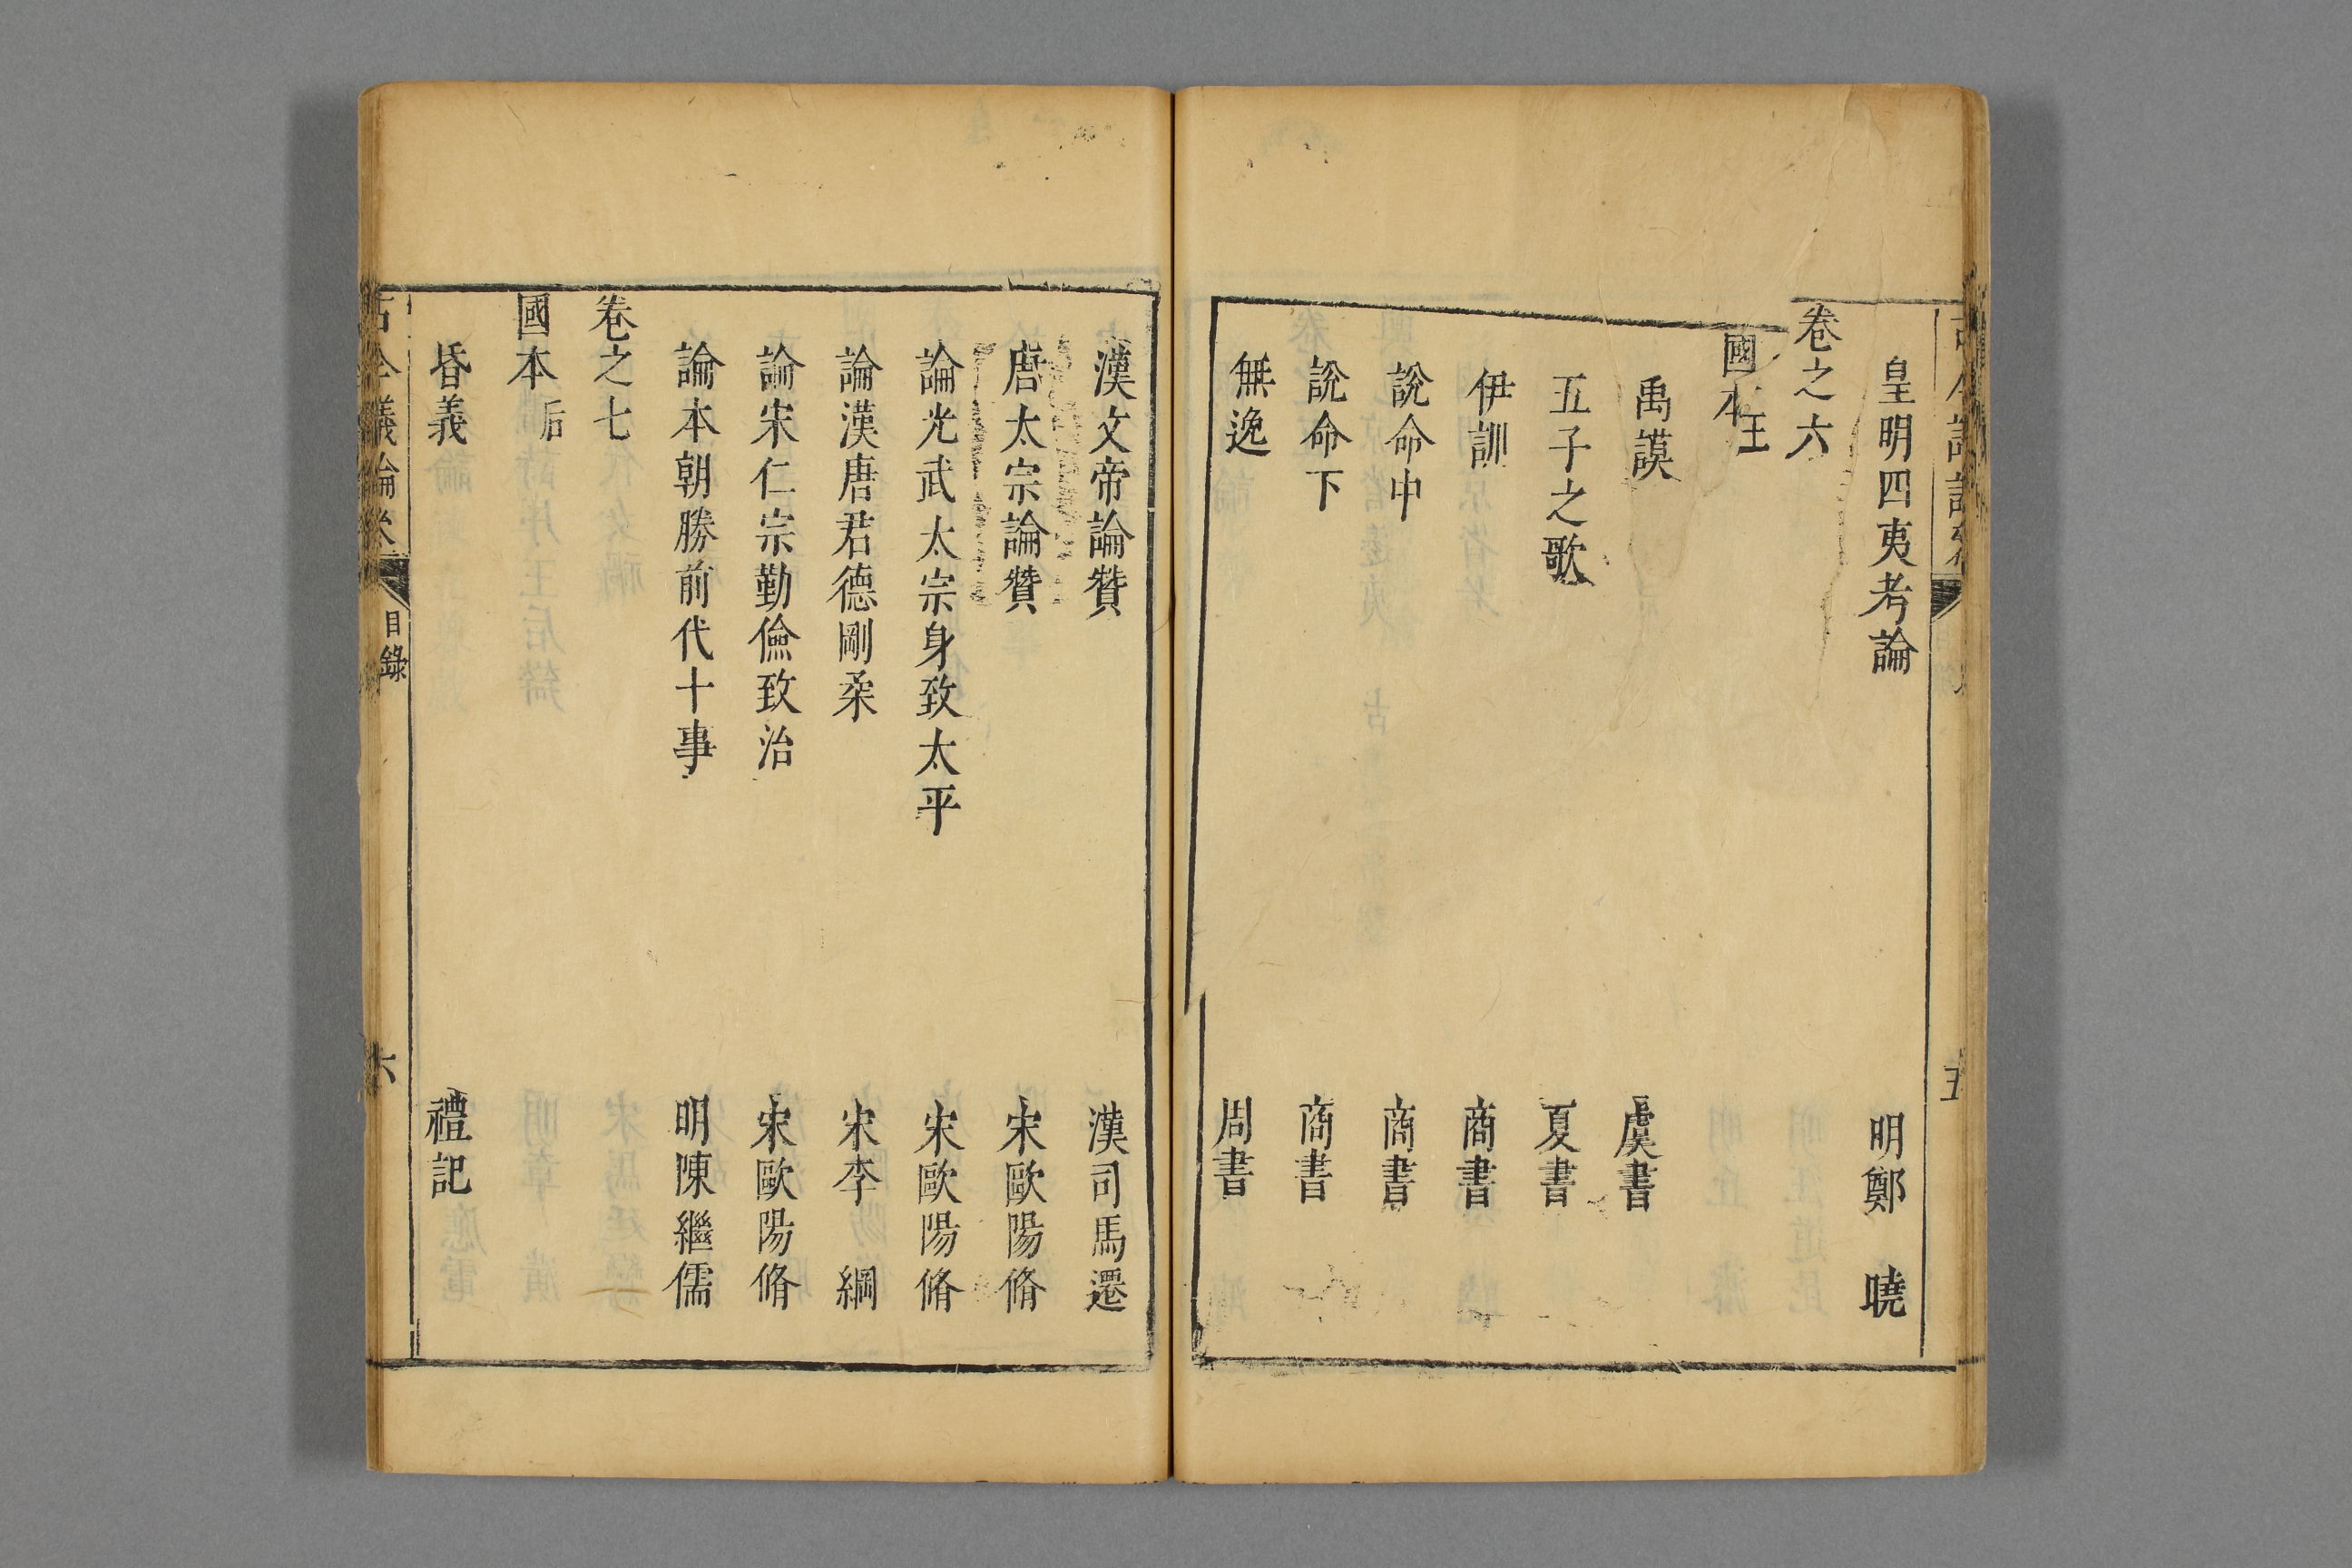 皇明四夷考論 明鄭 曉
卷之六
國本 王
禹謨 虞書
五子之歌 夏書
伊訓 商書
說命中 商書
說命下 商書
無逸 周書
漢文帝論贊 漢司馬遷
唐太宗論贊 宋歐陽脩
論光武太宗身致太平 宋歐陽脩
論漢唐君德剛柔 宋李 綱
論宋仁宗勤儉致治 宋歐陽脩
論本朝勝前代十事 明陳繼儒
卷之七
國本 后
昏義 禮記
古今議論 目錄 六